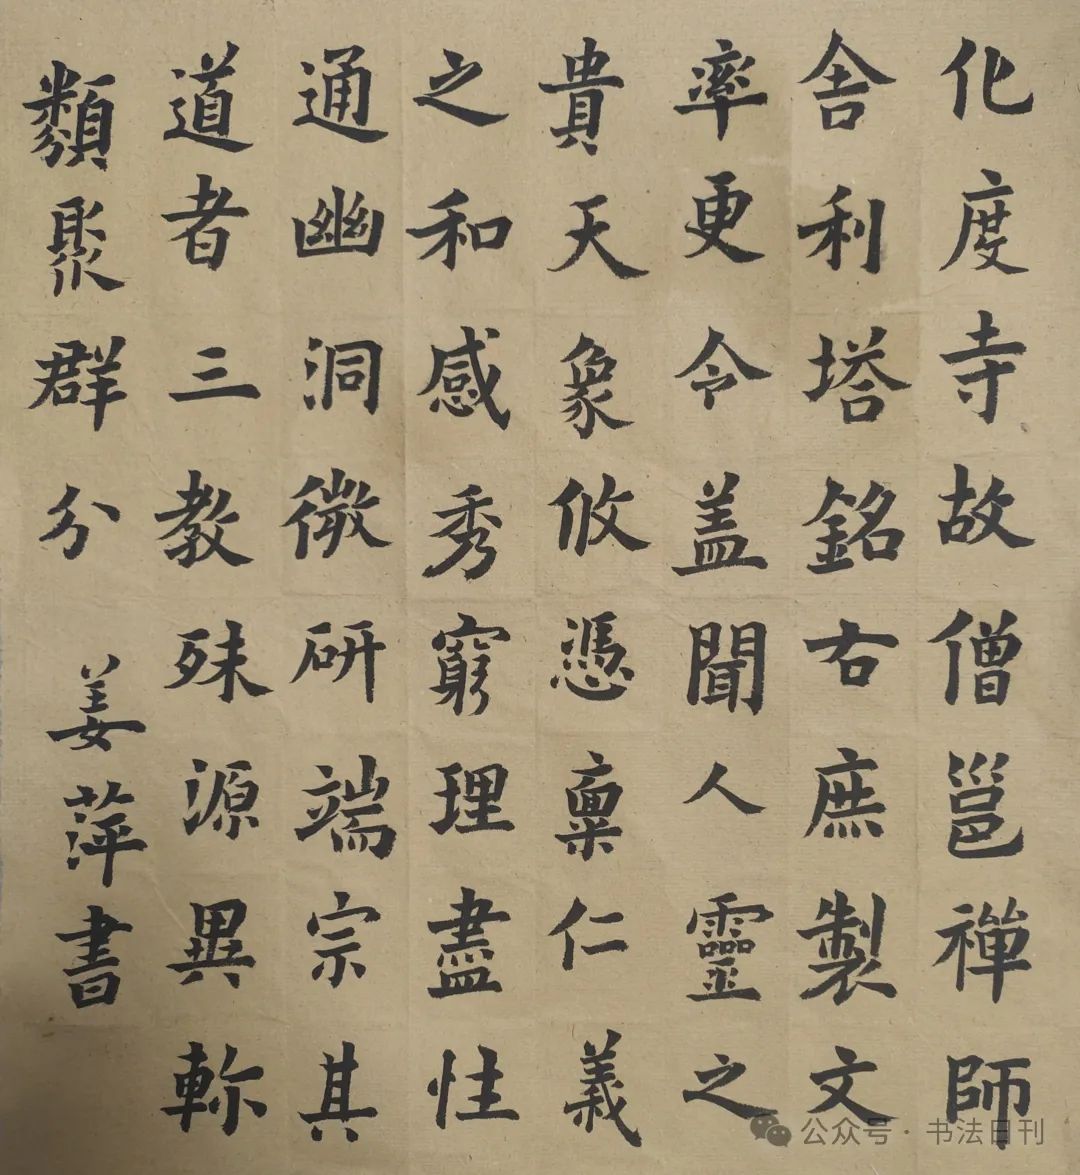 化度寺故僧邕禪師
舍利塔銘右庶製文
率更令盖聞人靈之
貴天象攸憑稟仁義
之和感秀窮理盡性
通幽洞微研端宗其
道者三教殊源異軫
類聚群分
姜萍書
公众号·书法日刊